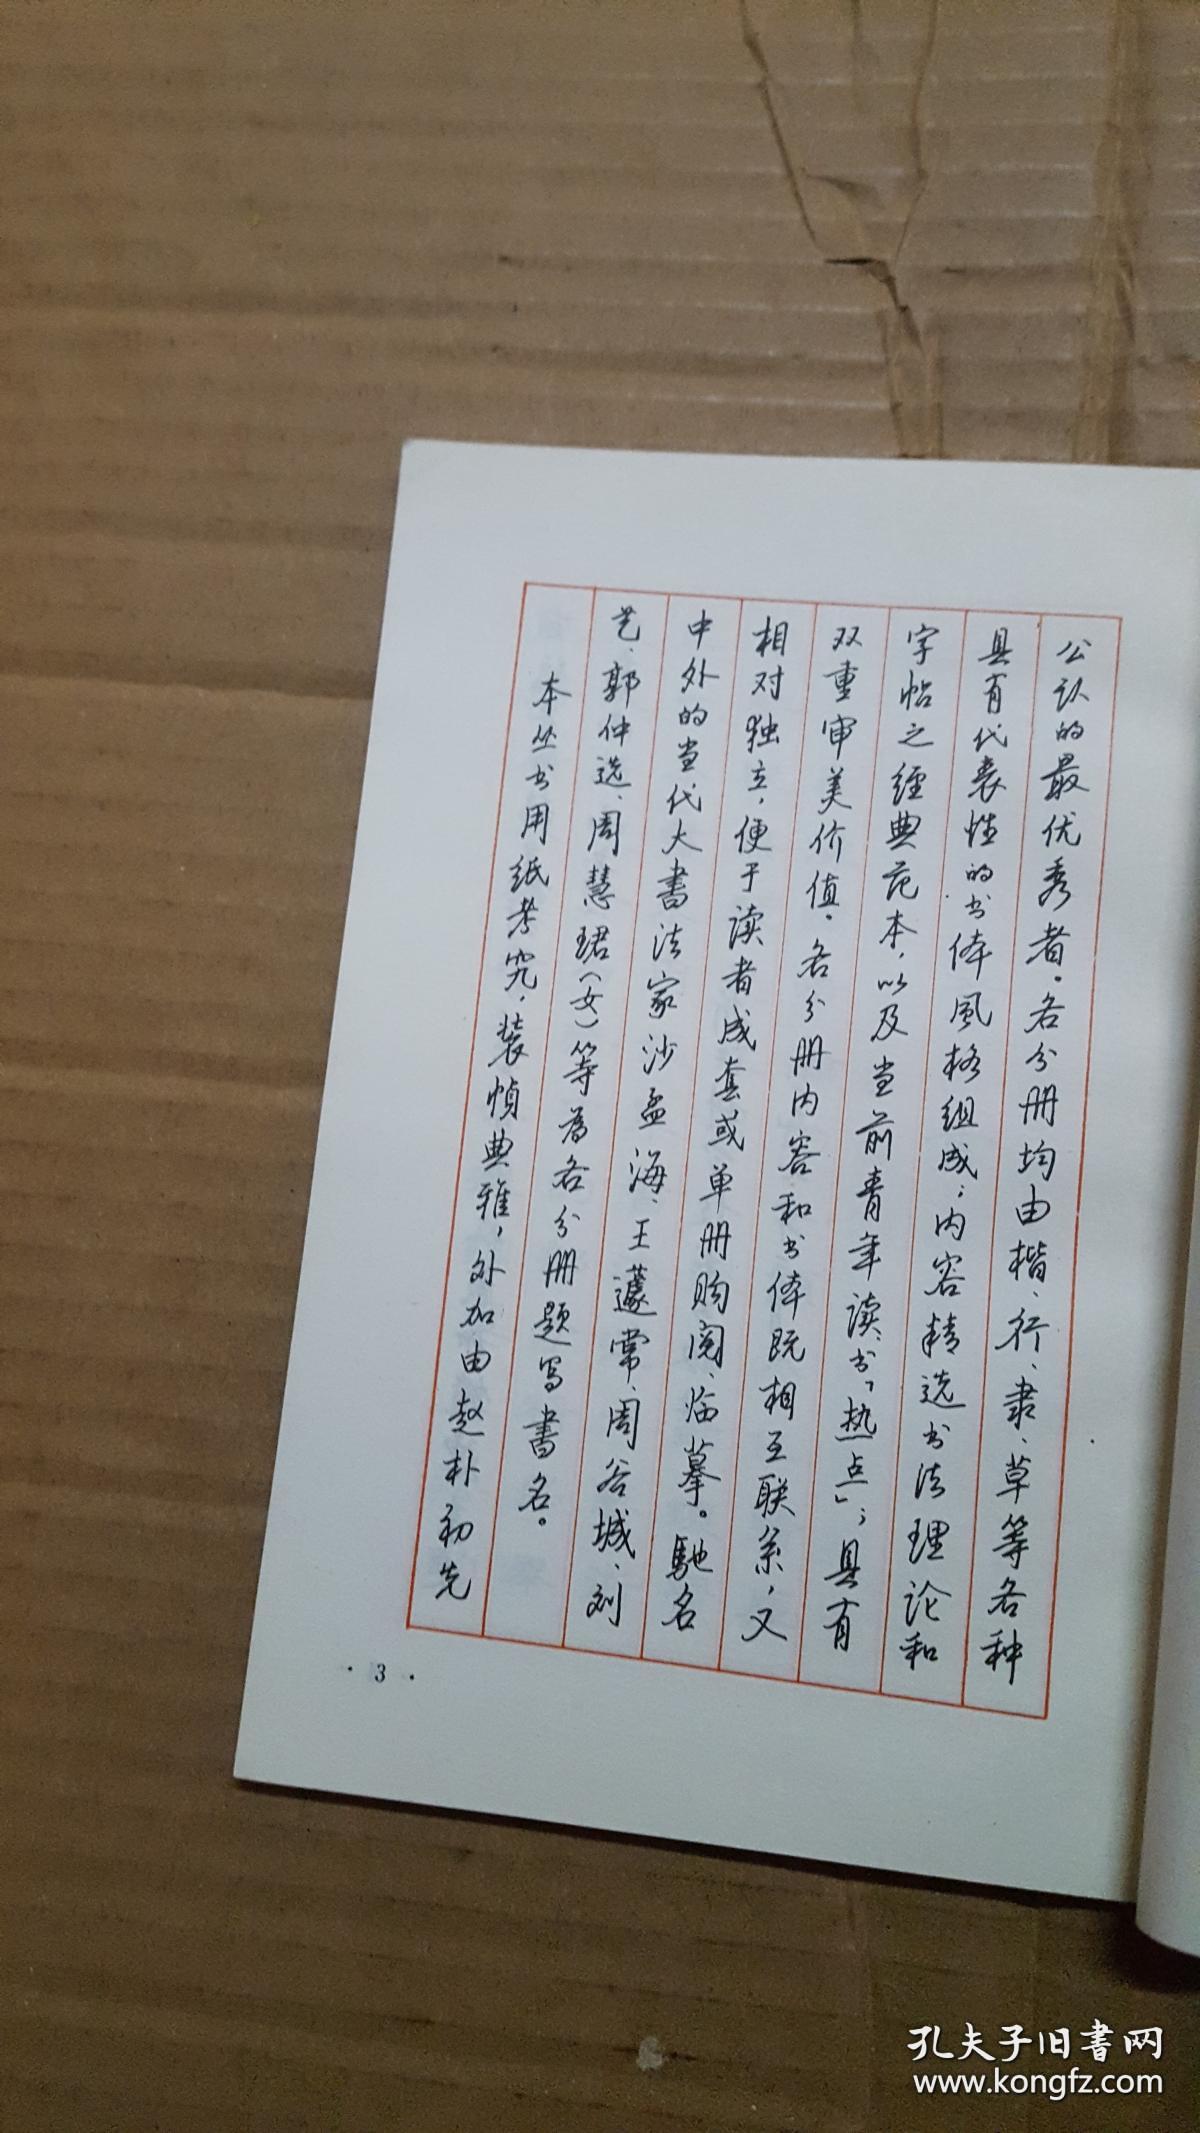 公认的最优秀者。各分册均由楷、行、隶、草等各种
具有代表性的书体风格组成；内容精选书法理论和
字帖之经典范本，以及当前青年读书「热点」；具有
双重审美价值。各分册内容和书体既相互联系，又
相对独立，便于读者成套或单册购阅、临摹。馳名
中外的当代大書法家沙孟海、王蘧常、周谷城、刘
艺、郭仲选、周慧珺(女)等为各分册题写書名。
本丛书用纸考究，装帧典雅，外加由赵朴初先
·3·
孔夫子旧書网
www.kongfz.com